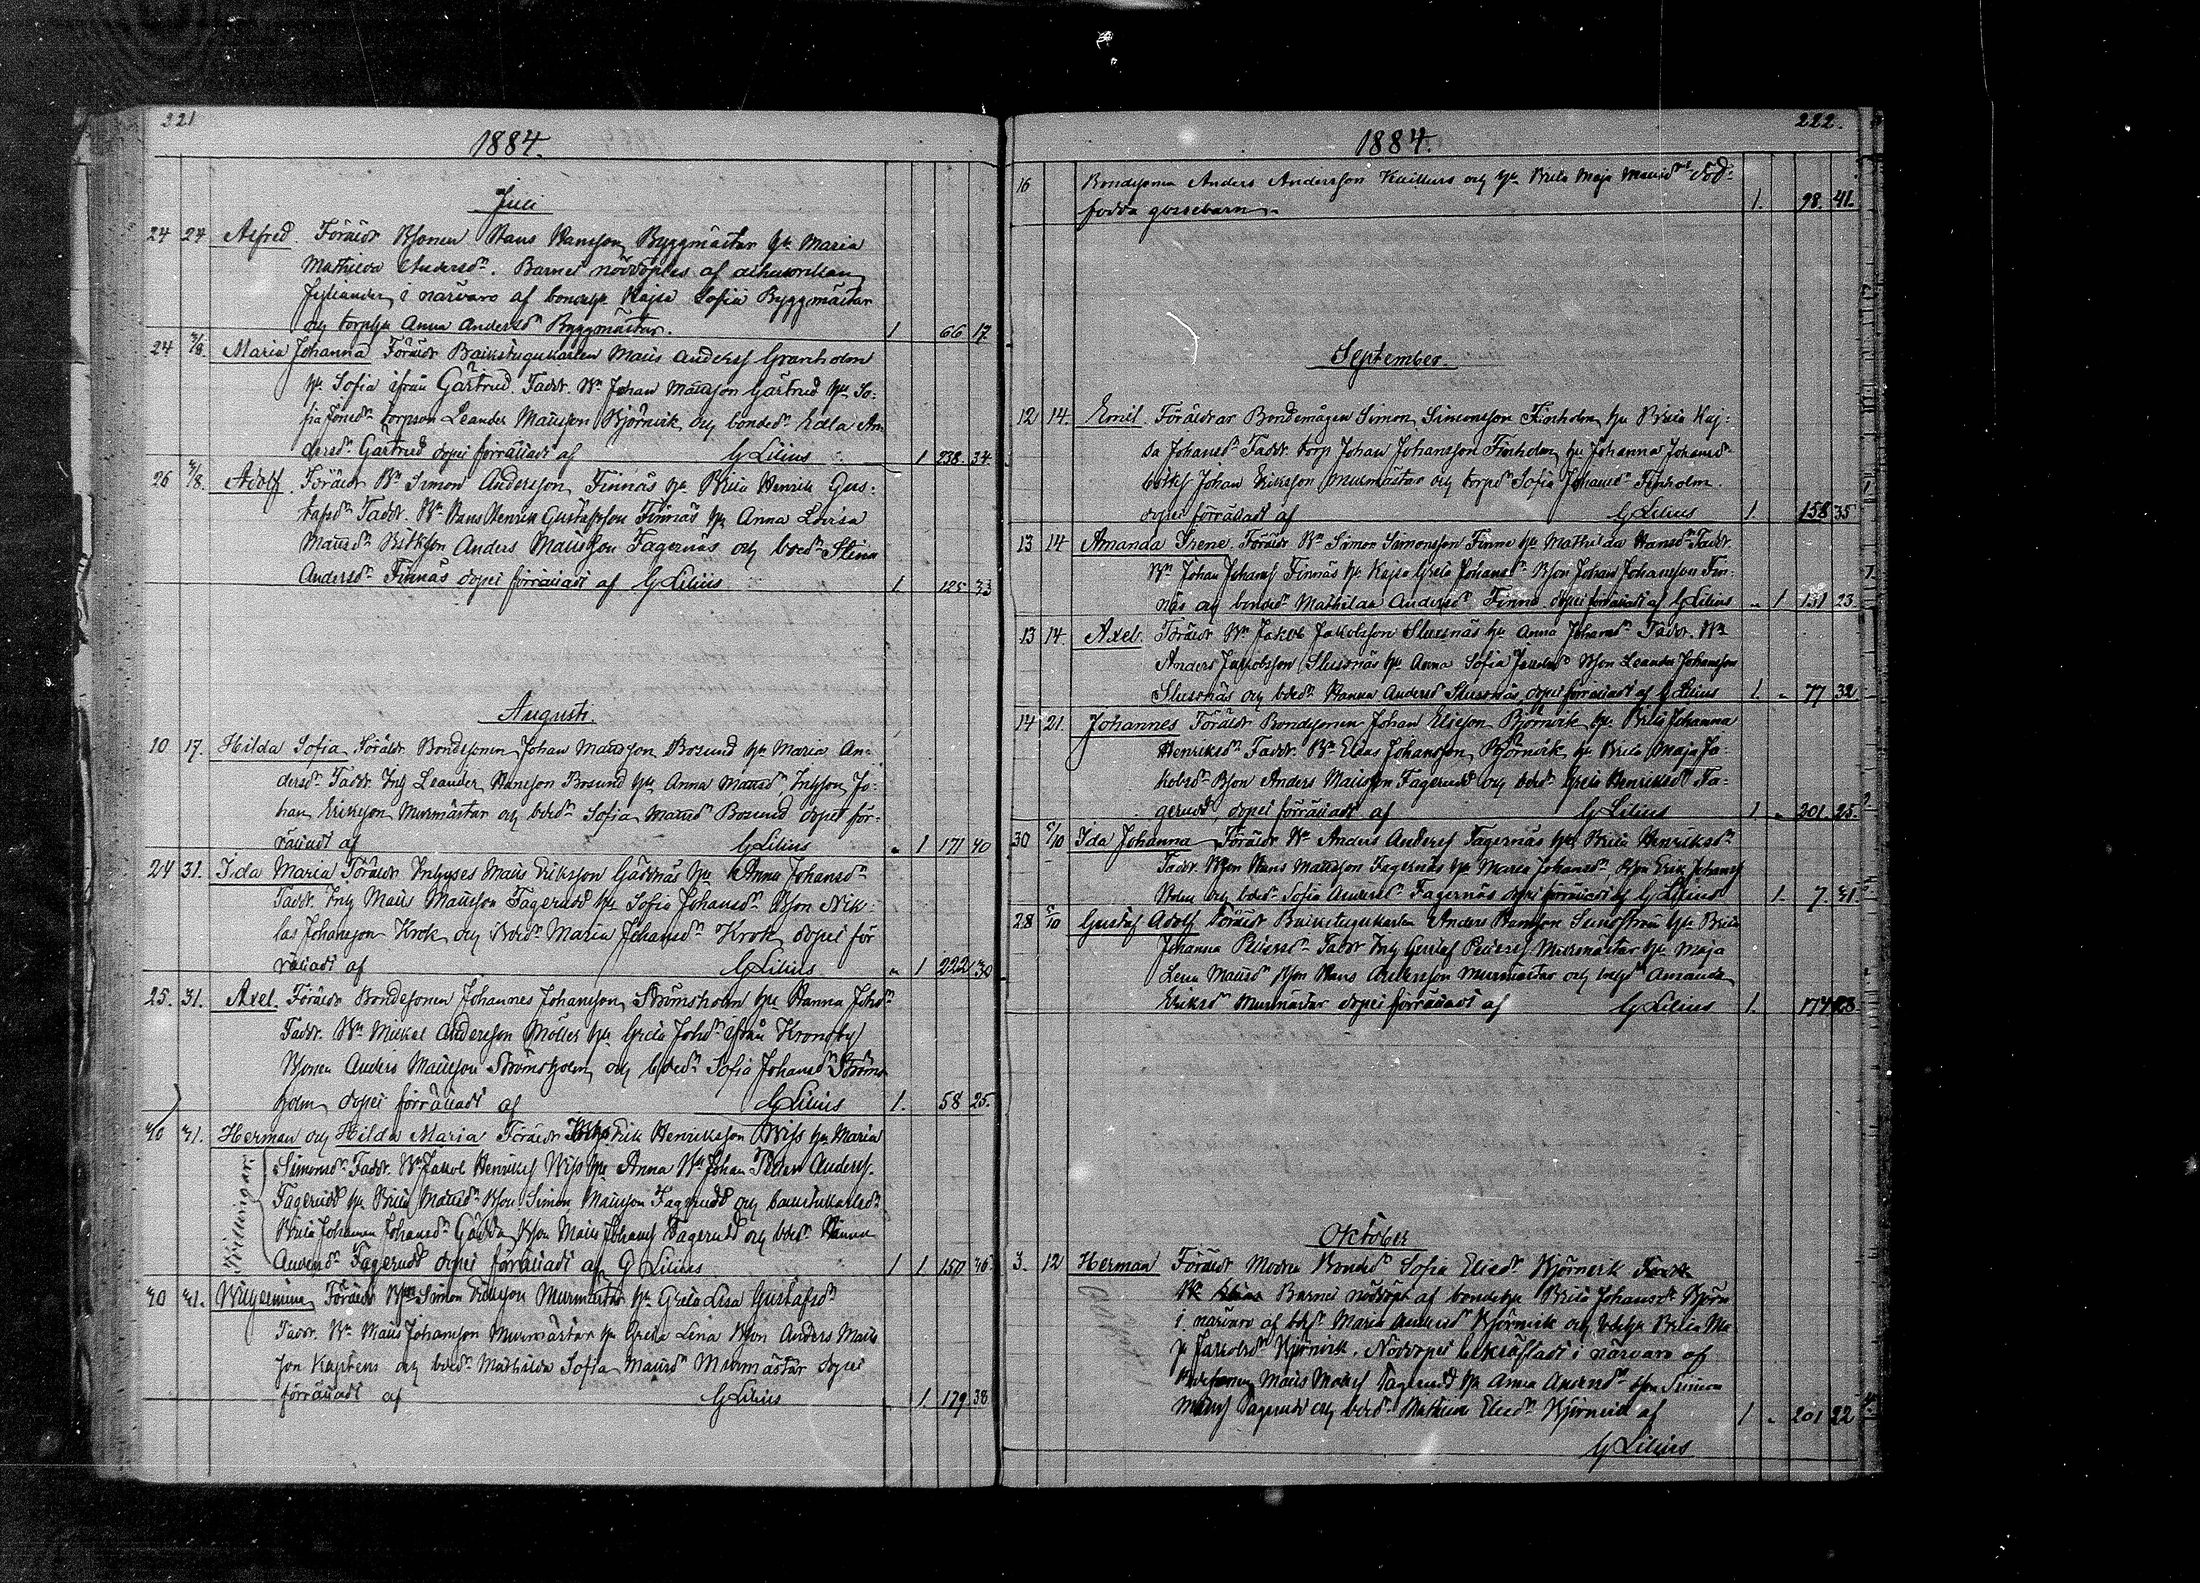 221
1884.
Juli
24 24 Alfred. Föräldr Bsonen Hans Hansson Byggmästar hu Maria
Mathilda Andersdr. Barnet nöddöptes af
i närvaro af bondehu Kajsa Sofia Byggmästar
och torphu Anna Andersdr Byggmästar. 1 66 17
24 3/8 Maria Johanna Föräldr Backstugukarlen Matts Anderss Granholm
hu Sofia ifrån Gärtrud. Faddr. Bn Johan Mattsson Gärtrud hu So:
fia torpson Leander Mattsson Björnvik och bonded. Edla An
dersdr Gärtrud dopet förrättadt af G Lilius 1 238. 34.
26 3/8. Adolf. Föräldr Bn Simon Andersson Finnäs hu Brita Henrik Gus:
tafsdr Faddr. Bn Hans Henrik Gustafsson Finnäs hu Anna Lovisa
Mattsdr Anders Mattsson Fagernäs och bded. Stina
Andersdr Finnäs dopet förrättadt af G Lilius 1. 125 33
Augusti.
10 17. Hilda Sofia Föräldr. Bondesonen Johan Mattsson Bosund hu Maria An:
dersdr Faddr. Inh Leander Hansson Bosund hu Anna Mattsd Inhson Jo:
han Eriksson Murmästar och bded. Sofia Mattsd Bosund dopet för:
rättadt af G Lilius " 1 171 40
24 31. Ida Maria Föräldr Inhyses Matts Eriksson Gäddnäs hu Anna Johansdr
Faddr Inh Matts Mattsson Fagerudd hu Sofia Johansdr Bson Nik:
las Johansson Krok och Bded. Maria Johansdr Krok dopet för
rättadt af G Lilius " 1 222 30
25. 31. Axel. Föräldr Bondesonen Johannes Johansson Strömsholm hu Hanna Johdr
Faddr. Bn Mickel Andersson Möller hu Greta Johdr ifrån Kronoby
Bsonen Anders Mattsson Strömsholm och bded. Sofia Johansdr Ströms
holm dopet förrättadt af G Lilius 1. 58 25.
30 31. Herman och Hilda Maria Föräldr Erik Henriksson Wiss hu Maria
Tvillingar
Simonsdr Faddr. Bn Jakob Henrikss Wiss hu Anna Bn Johan Peter Anderss
Fagerudd hu Brita Mattsdr Bson Simon Mattsson Fagerudd och
Brita Johanna Johansdr Gädda Bson Matts Johanss Fagerudd och bded. Hanna
Andersdr Fagerudd dopet förrättadt af G Lilius 1 1. 150 36
30 31. Wilhelmina Föräldr Simon Eriksson Murmästar hu Greta Lisa Gustafsdr
Faddr. Bn Matts Johansson Murmästar hu Greta Lena Bson Anders Matts
son Kaptens och bded. Mathilda Sofia Mattsdr Murmästar dopet
förrättadt af G Lilius " 1. 179 38
222.
1884.
16 Bondesonen Anders Andersson och hu Brita Maja Mattsdrs död:
födda gossebarn. 1. 98. 41.
September.
12 14. Emil. Föräldrar Bondemågen Simon Simonsson Finholm hu Brita Kaj:
sa Johansd. Faddr. torp Johan Johansson Finholm hu Johanna Johansd
Johan Eriksson Murmästar och torpd. Sofia Johansdr Finholm.
dopet förrättadt af G Lilius 1. 158 35
13 14 Amanda Irene. Föräldr Bn Simon Simonsson Finne hu Mathilda Hansdr Faddr.
Bn Johan Johanss Finnäs hu Kajsa Greta Johansd. Bson Johan Johansson Fin:
näs och bonded. Mathilda Andersdr Finne dopet förrättadt af G Lilius " 1 131 23
13 14. Axel. Föräldr Bn Jakob Jakobsson Slussnäs hu Anna Johansdr Faddr. Bn
Anders Jakobsson Slussnäs hu Anna Sofia Jakobsd Bson Leander Johansson
Slussnäs och bded. Hanna Andersd Slussnäs dopet förrättadt af G Lilius 1. " 77 32
14 21. Johannes Föräldr Bondesonen Johan Eliesson Björnvik hu Brita Johanna
Henriksdr Faddr. Bn Elias Johansson Björnvik hu Brita Maja Ja:
kobsd. Bson Anders Mattsson Fagerudd och bded. Greta Henriksdr Fa:
gerudd, dopet förrättadt af G Lilius 1 " 201. 25.
30 5/10 Ida Johanna Föräldr Bn Anders Anderss Fagernäs hu Brita Henriksdr
Faddr. Bson Hans Mattsson Fagernäs hu Maria Johansdr Bson Erik Johanss
och bded. Sofia Andersdr Fagernäs dopet förrättadt af G Lilius 1. 7. 31
28 5/10 Gustaf Adolf Föräldr Backstugukarlen Anders Hansson Sundström hu Brita
Johanna Petersdr Faddr Inh Gustaf Peterss Murmästar hu Maja
Lena Mattsdr Bson Hans Andersson Murmästar och inhd Amanda
Eriksdr Murmästar dopet förrättadt af G Lilius 1. 177
Oktober
3. 12 Herman Föräldr Modren Bonded Sofia Eliedr Björnvik
Barnet nöddöpt af bondehu Brita Johansdr Björn
i närvaro af Maria Andersd Björnvik och bdehu Brita Ma
ja Jakobsdr Björnvik. Nöddopet bekräftadt i närvaro af
Matts Mattss Fagerudd hu Anna Andersdr Bson Simon
Mattss Fagerudd och bded. Mathilda Eliedr Björnvik af 1 " 201 22
G Lilius